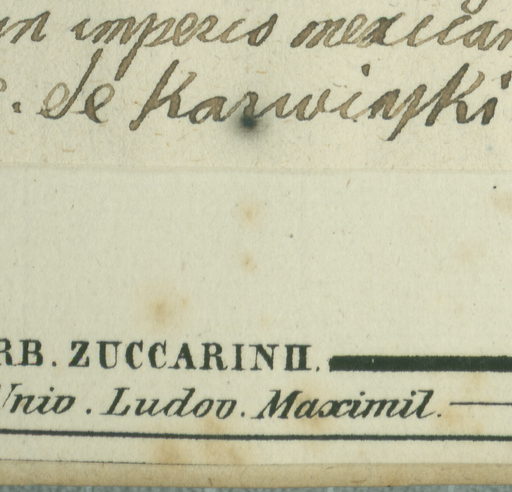 in imperio mexican
. de Karwinski
RB. ZUCCARINII.
Univ. Ludov. Maximil.